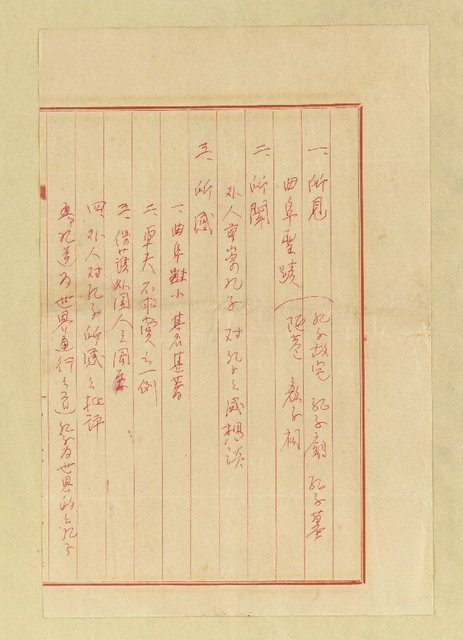 一、所見
曲阜聖蹟（孔子故宅 孔子廟 孔子墓
陋巷 顏子祠
二、所聞
外人尊崇孔子 对孔子之感想談
三、所感
一、曲阜雖小 其名甚著
二、車夫不求賞之一例
三、保護外国人之周
四、外人对孔子所感之批評
孔道為世界通行之道 孔子為世界的之孔子